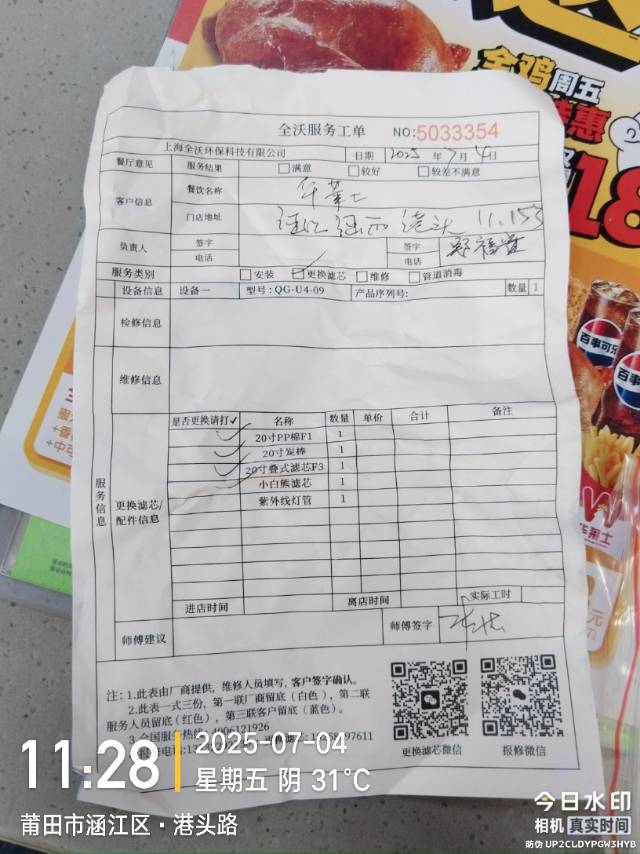 全鸡周五
特惠
18
全沃服务工单 NO:5033354
上海全沃环保科技有限公司 日期 2025 年 7 月 4 日
餐厅意见 服务结果 满意 较好 较差不满意
客户信息 餐饮名称 华莱士
门店地址 涵江 涵西 港头 11.153
负责人 签字 签字
电话 电话
服务类别 安装 更换滤芯 维修 管道消毒
设备信息 设备一 型号:QG-U4-09 产品序列号: 数量 1
检修信息
维修信息
服务信息
更换滤芯/配件信息
是否更换请打✓ 名称 数量 单价 合计 备注
✓ 20寸PP棉F1 1
✓ 20寸炭棒 1
✓ 20寸叠式滤芯F3 1
✓ 小白熊滤芯 1
紫外线灯管 1
进店时间 离店时间 实际工时
师傅建议 师傅签字
注:1.此表由厂商提供,维修人员填写,客户签字确认。
2.此表一式三份,第一联厂商留底(白色),第二联
服务人员留底(红色),第三联客户留底(蓝色)。
3.全国服务热线:4006121926
报修电话:
更换滤芯微信 报修微信
百事可乐
百事
华莱士
11:28
2025-07-04
星期五 阴 31℃
莆田市涵江区·港头路
今日水印
相机 真实时间
防伪 UP2CLDYPGW3HYB